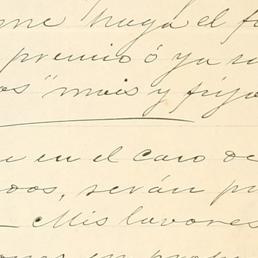 me haga el f
premio ó ya s
os" mais y frijo
e en el caso de
dos, serán p
- Mis lavores